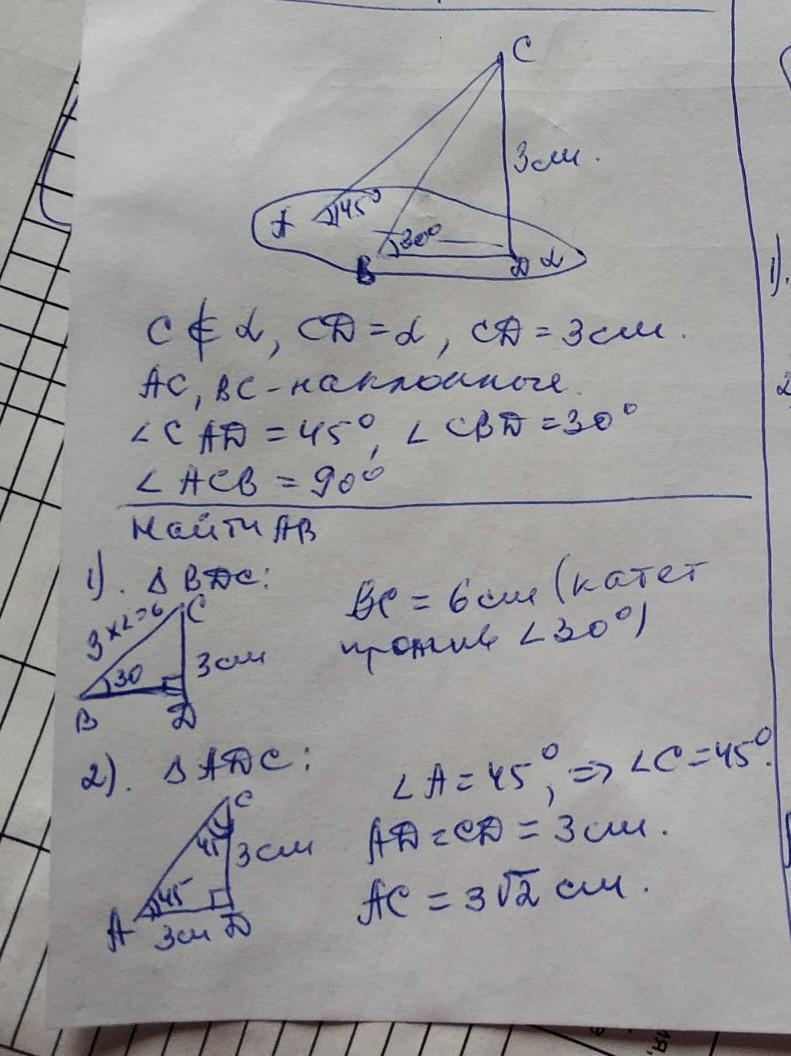 C
3 см.
A 45°
B 30° D α
C ∉ α, CD = α, CD = 3 см.
AC, BC - наклонные.
∠CAD = 45°, ∠CBD = 30°
∠ACB = 90°
Найти AB
1). Δ BDC:
C
3×2=6
3 см
30
B D
BC = 6 см (катет
против ∠30°)
2). Δ ADC:
C
45
3 см
45
A 3 см D
∠A = 45°, => ∠C = 45°.
AD = CD = 3 см.
AC = 3√2 см.
1).